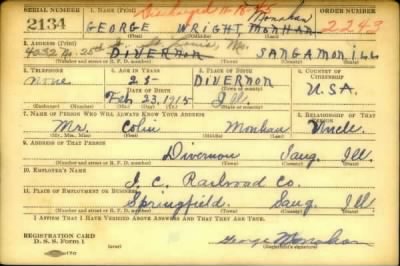 SERIAL NUMBER 1. NAME (Print) ORDER NUMBER
Discharged 11-16-45
2134 GEORGE WRIGHT MONHAN Monahan 2243
(First) (Middle) (Last)
2. ADDRESS (Print)
4032 N. 25th St. Louis, Mo.
DIVERNON SANGAMON ILL
(Number and street or R. F. D. number) (Town) (County) (State)
3. TELEPHONE 4. AGE IN YEARS 5. PLACE OF BIRTH 6. COUNTRY OF CITIZENSHIP
None 25 DIVERNON
DATE OF BIRTH (Town or county) U.S.A.
Feb 23, 1915 Ill.
(Exchange) (Number) (Mo.) (Day) (Yr.) (State or country)
7. NAME OF PERSON WHO WILL ALWAYS KNOW YOUR ADDRESS 8. RELATIONSHIP OF THAT PERSON
Mr. Colin Monhan Uncle.
(Mr., Mrs., Miss) (First) (Middle) (Last)
9. ADDRESS OF THAT PERSON
Divernon Sang. Ill.
(Number and street or R. F. D. number) (Town) (County) (State)
10. EMPLOYER'S NAME
I. C. Railroad Co.
11. PLACE OF EMPLOYMENT OR BUSINESS
Springfield. Sang. Ill
(Number and street or R. F. D. number) (Town) (County) (State)
I AFFIRM THAT I HAVE VERIFIED ABOVE ANSWERS AND THAT THEY ARE TRUE.
REGISTRATION CARD
D. S. S. Form 1 George Monahan
(Registrant's signature)